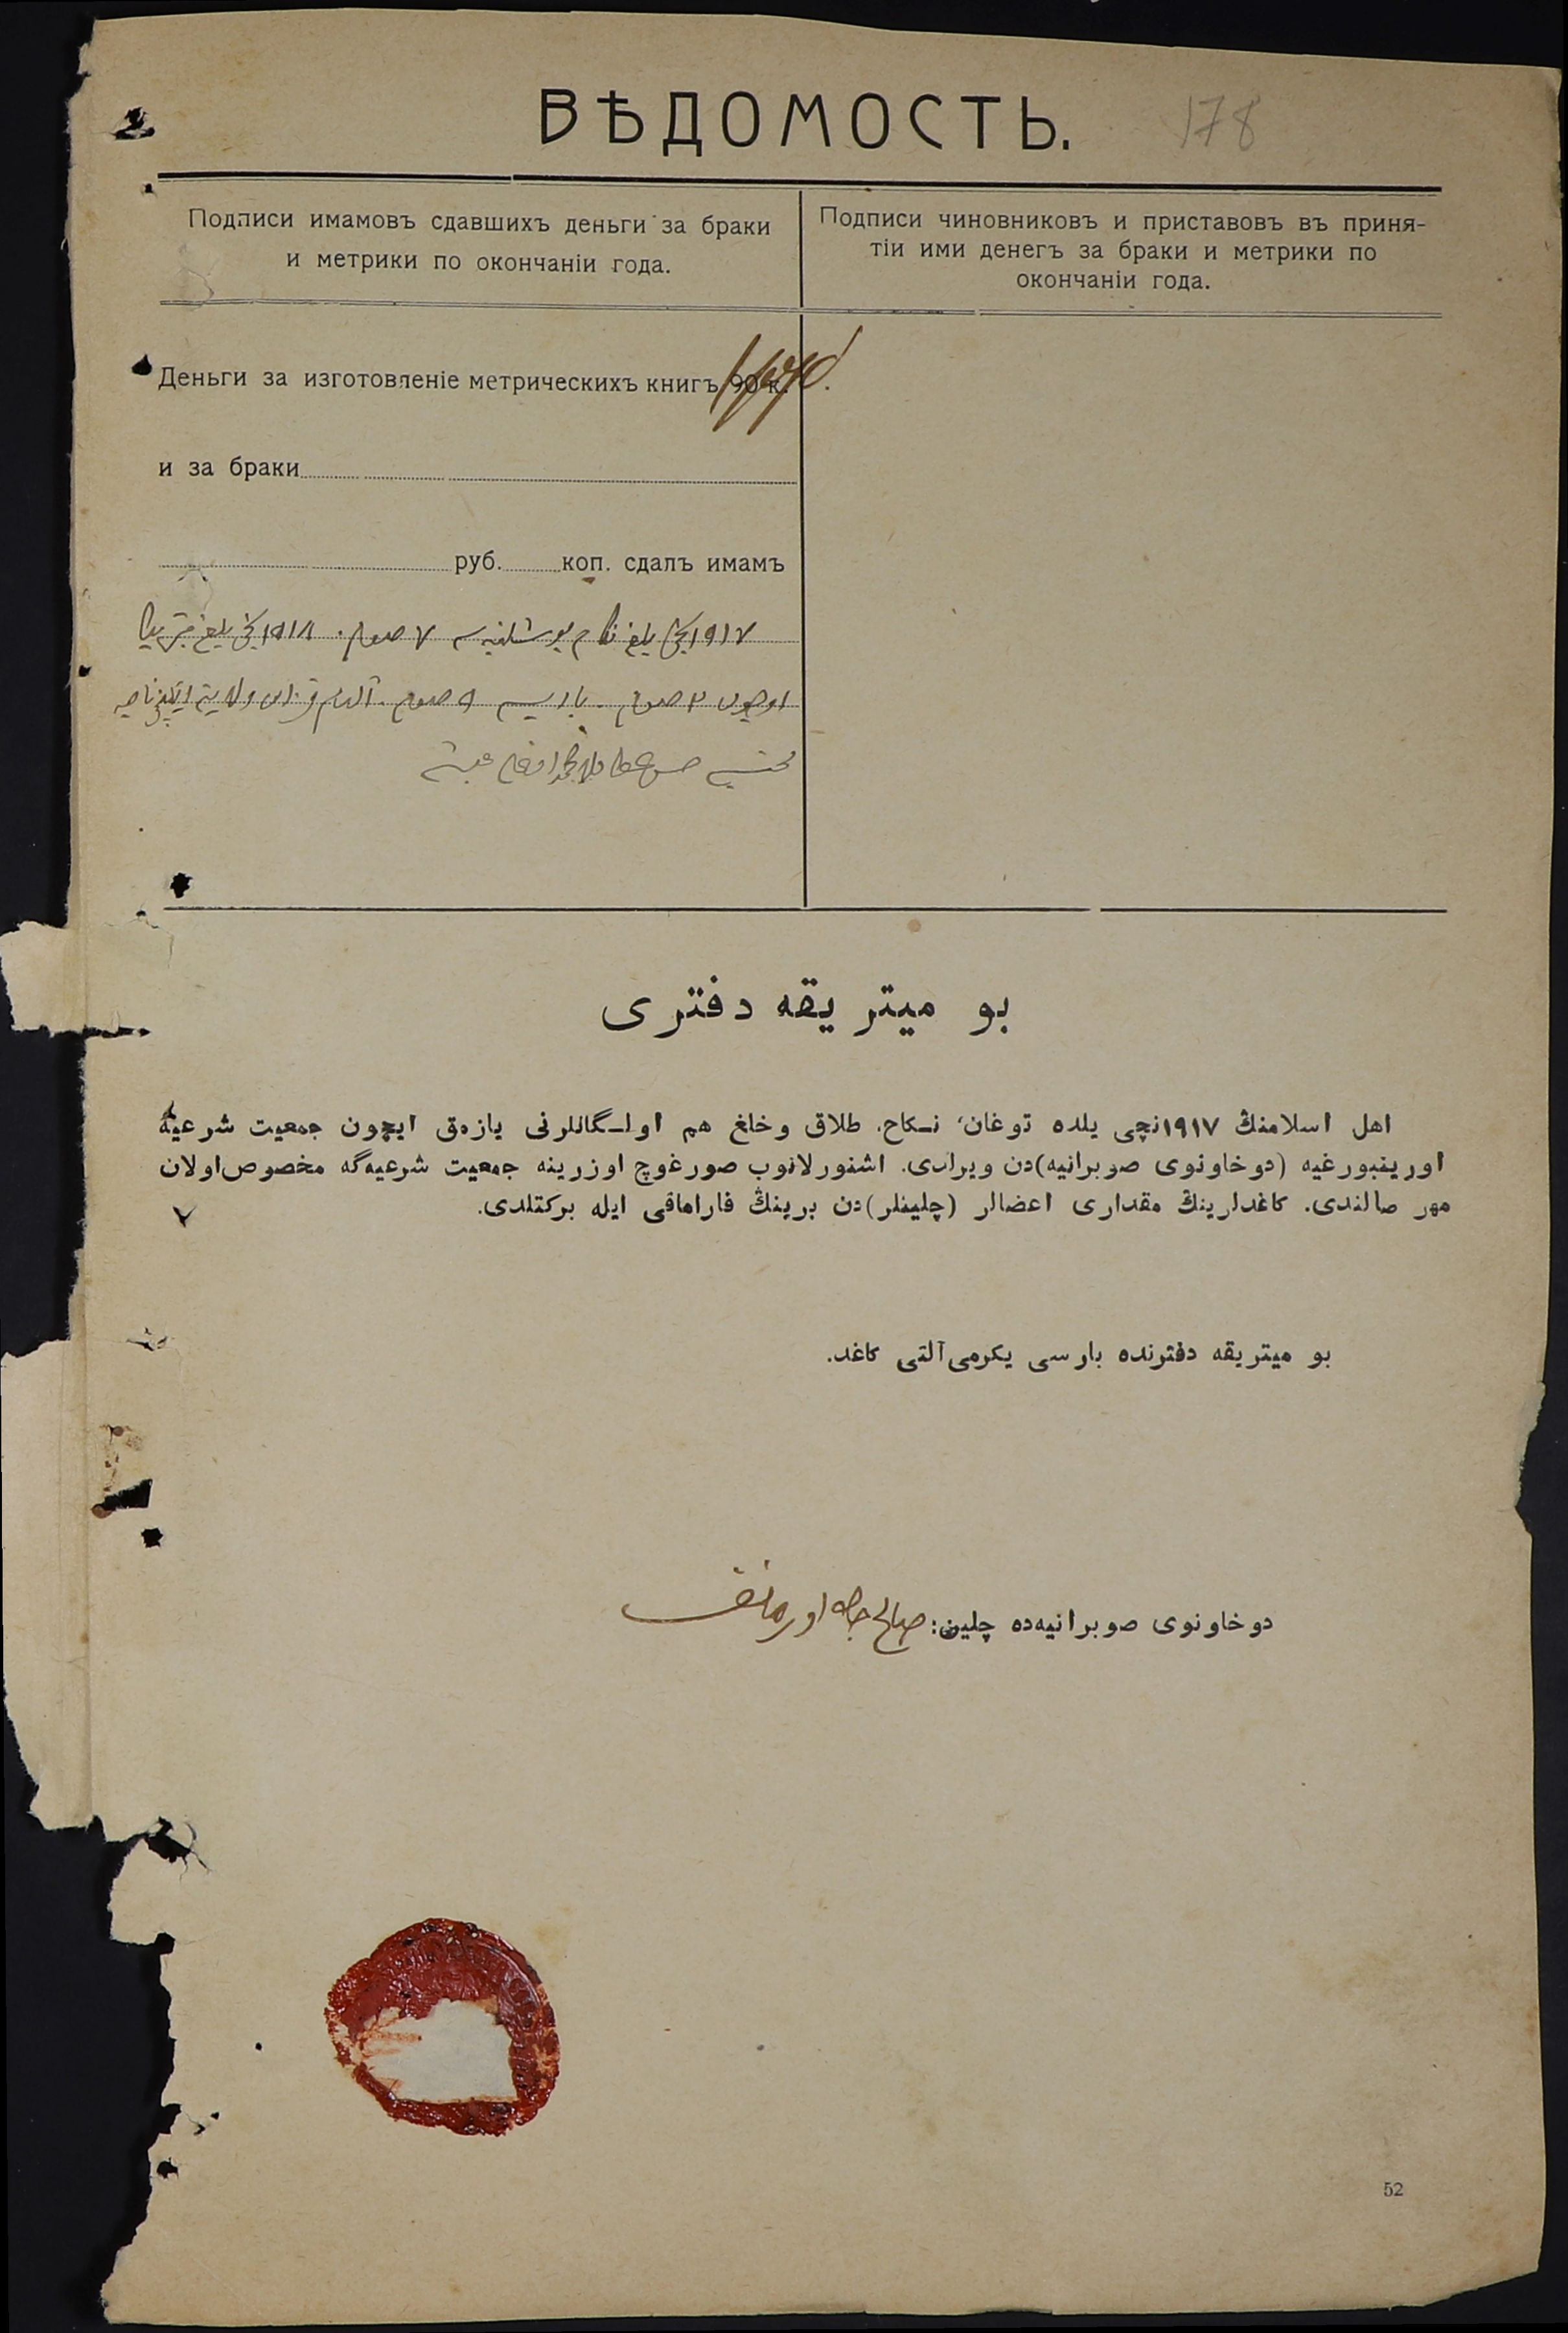 ВѢДОМОСТЬ.
178
Подписи имамовъ сдавшихъ деньги за браки
и метрики по окончаніи года.
Подписи чиновниковъ и приставовъ въ приня-
тіи ими денегъ за браки и метрики по
окончаніи года.
Деньги за изготовленіе метрическихъ книгъ 90 к.
и за браки
руб. коп. сдалъ имамъ
۱۹۱۷ نچی یلغی نکاح ۷ صوم. ۱۹۱۸ نچی یلغی
اوچون ۲ صوم. باریسی ۹ صوم.
بو میتریقه دفتری
اهل اسلامنڭ ۱۹۱۷نچی یلده توغان، نـكاح، طلاق وخلغ هم اولـگانلرنی یازمق ایچون جمعیت شرعیهٔ
اورینبورغیه (دوخاونوی صوبرانیه)دن ویرلدی. اشنورلانوب صورغوچ اوزرینه جمعیت شرعیه‌گه مخصوص اولان
مهر صالندی. كاغدلرینڭ مقداری اعضالر (چلینلر)دن برینڭ قاراماقی ایله بركتلدی.
بو میتریقه دفترنده بارسی یكرمی آلتی كاغد.
دوخاونوی صوبرانیه‌ده چلین: صالح جان اورمانف
52